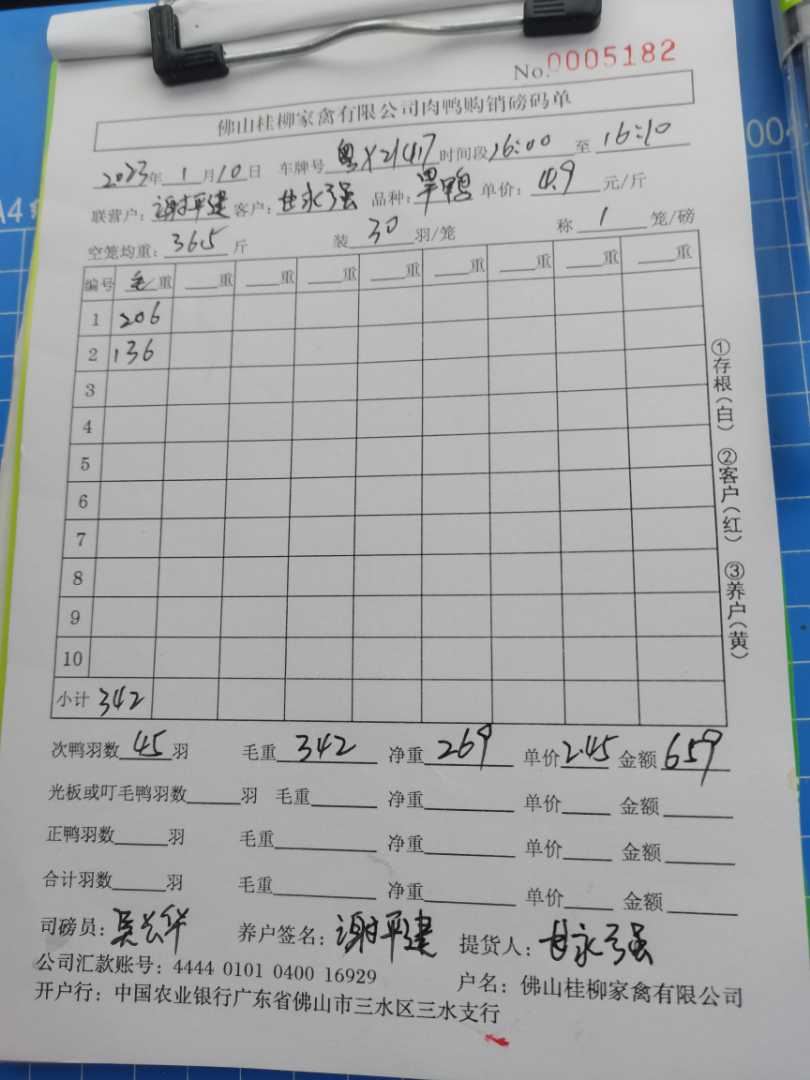 No.0005182
佛山桂柳家禽有限公司肉鸭购销磅码单
2023年1月10日 车牌号 粤X21417 时间段16:00 至 16:10
联营户: 谢平建 客户: 甘永强 品种: 旱鸭 单价: 4.9 元/斤
空笼均重: 36.5 斤 装 30 羽/笼 称 1 笼/磅
编号 毛重 重 重 重 重 重 重 重 重
1 206
2 136
3
4
5
6
7
8
9
10
小计 342
①存根(白) ②客户(红) ③养户(黄)
次鸭羽数 45 羽 毛重 342 净重 269 单价 2.45 金额 659
光板或叮毛鸭羽数 羽 毛重 净重 单价 金额
正鸭羽数 羽 毛重 净重 单价 金额
合计羽数 羽 毛重 净重 单价 金额
司磅员: 吴华 养户签名: 谢平建 提货人: 甘永强
公司汇款账号: 4444 0101 0400 16929 户名: 佛山桂柳家禽有限公司
开户行: 中国农业银行广东省佛山市三水区三水支行
A4
004